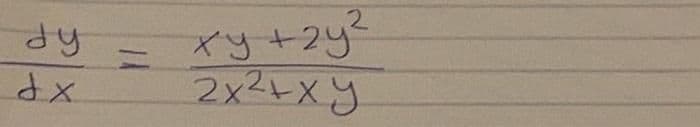 dy/dx = (xy + 2y²)/(2x² + xy)